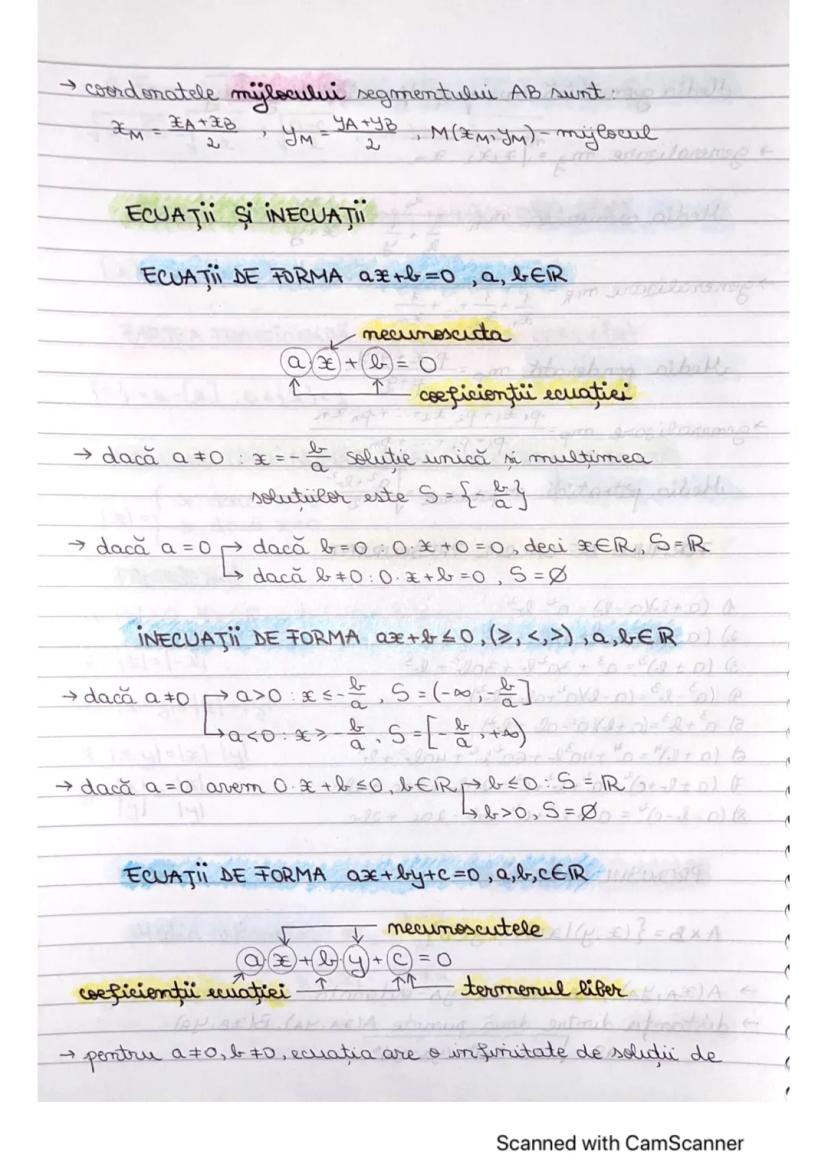 → coordonatele mijlocului segmentului AB sunt:
x_M = (x_A + x_B)/2 , y_M = (y_A + y_B)/2 , M(x_M, y_M) - mijlocul
ECUAȚII ȘI INECUAȚII
ECUAȚII DE FORMA ax+b=0, a, b∈ℝ
necunoscuta
a·x + b = 0
coeficienții ecuației
→ dacă a≠0 : x = -b/a soluție unică și mulțimea
soluțiilor este S = {-b/a}
→ dacă a=0 → dacă b=0 : 0·x+0=0, deci x∈ℝ, S=ℝ
↳ dacă b≠0 : 0·x+b=0, S=∅
INECUAȚII DE FORMA ax+b≤0, (≥, <, >), a, b∈ℝ
→ dacă a≠0 → a>0 : x ≤ -b/a, S = (-∞, -b/a]
↳ a<0 : x ≥ -b/a, S = [-b/a, +∞)
→ dacă a=0 avem 0·x+b≤0, b∈ℝ → b≤0 : S=ℝ
↳ b>0, S=∅
ECUAȚII DE FORMA ax+by+c=0, a,b,c∈ℝ
necunoscutele
a·x + b·y + c = 0
coeficienții ecuației termenul liber
→ pentru a≠0, b≠0, ecuația are o infinitate de soluții de
Scanned with CamScanner